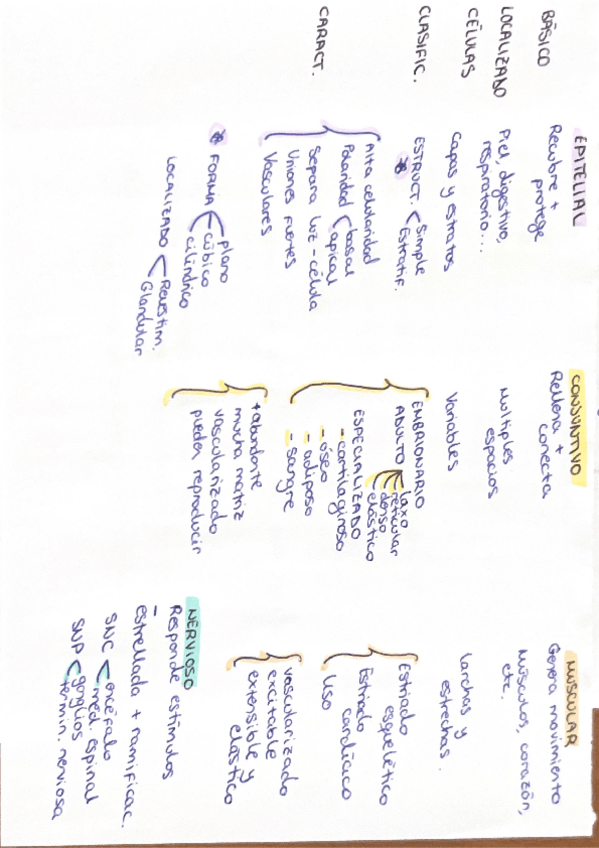 BÁSICO
LOCALIZADO
CÉLULAS
CLASIFIC.
CARACT.
EPITELIAL
Recubre +
protege
Piel, digestivo,
respiratorio...
Capas y estratos
ESTRUCT. Simple
Estratif.
Alta celularidad
Polaridad basal
apical
Separa luz - célula
Uniones fuertes
Vasculares
FORMA plano
cúbico
cilíndrico
LOCALIZADO Revestim.
Glandular
CONJUNTIVO
Rellena +
conecta
Múltiples
espacios
Variables
EMBRIONARIO
ADULTO laxo
reticular
denso
elástico
ESPECIALIZADO
- cartilaginoso
- óseo
- adiposo
- sangre
+ abundante
mucha matriz
vascularizado
pueden reproducir
MUSCULAR
Genera movimiento
Músculos, corazón,
etc.
Larchas y
estrechas.
Estriado
esquelético
Estriado
cardíaco
Liso
vascularizado
excitable
extensible y
elástico
NERVIOSO
Responde estímulos
-
estrellada + ramificac.
SNC encéfalo
méd. espinal
SNP ganglios
termin. nerviosa